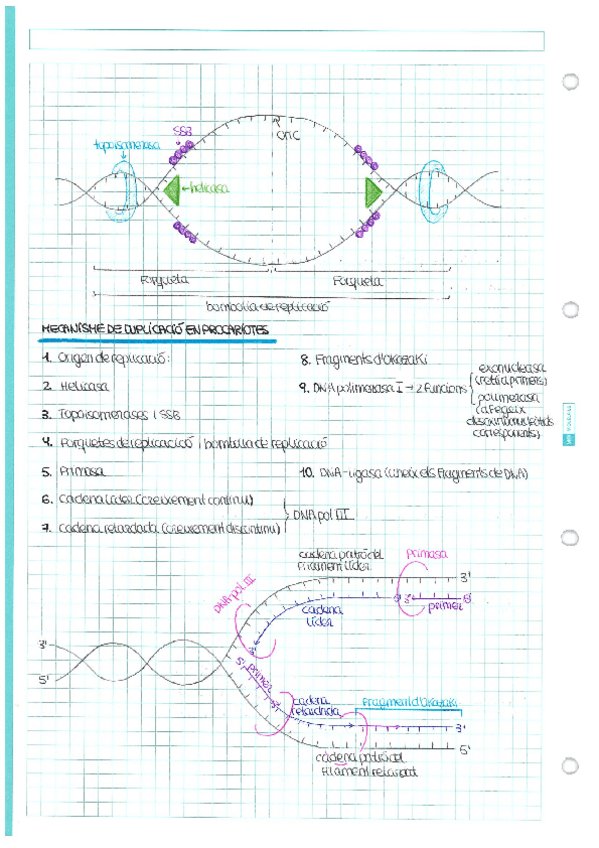 SSB
topoisomerasa
oriC
helicasa
Forqueta
Forqueta
bombolla de replicació
MECANISME DE DUPLICACIÓ EN PROCARIOTES
1. Origen de replicació:
2. Helicasa
3. Topoisomerases i SSB
4. Forquetes de replicacició i bombolla de replicació
5. Primasa
6. cadena líder (creixement continu)
7. cadena retardada (creixement discontinu)
DNA pol III
8. Fragments d'Okazaki
9. DNA polimerasa I → 2 funcions
exonucleasa
(retira primers)
polimerasa
(afegeix
desoxiribonucleòtids
corresponents)
10. DNA-ligasa (uneix els fragments de DNA)
cadena patró del
Filament líder
Primasa
3'
DNA pol III
cadena
líder
3'
primer
5'
3'
5'
5'
primer
3'
cadena
retardada
Fragment d'Okazaki
3'
5'
cadena patró del
Filament retardat